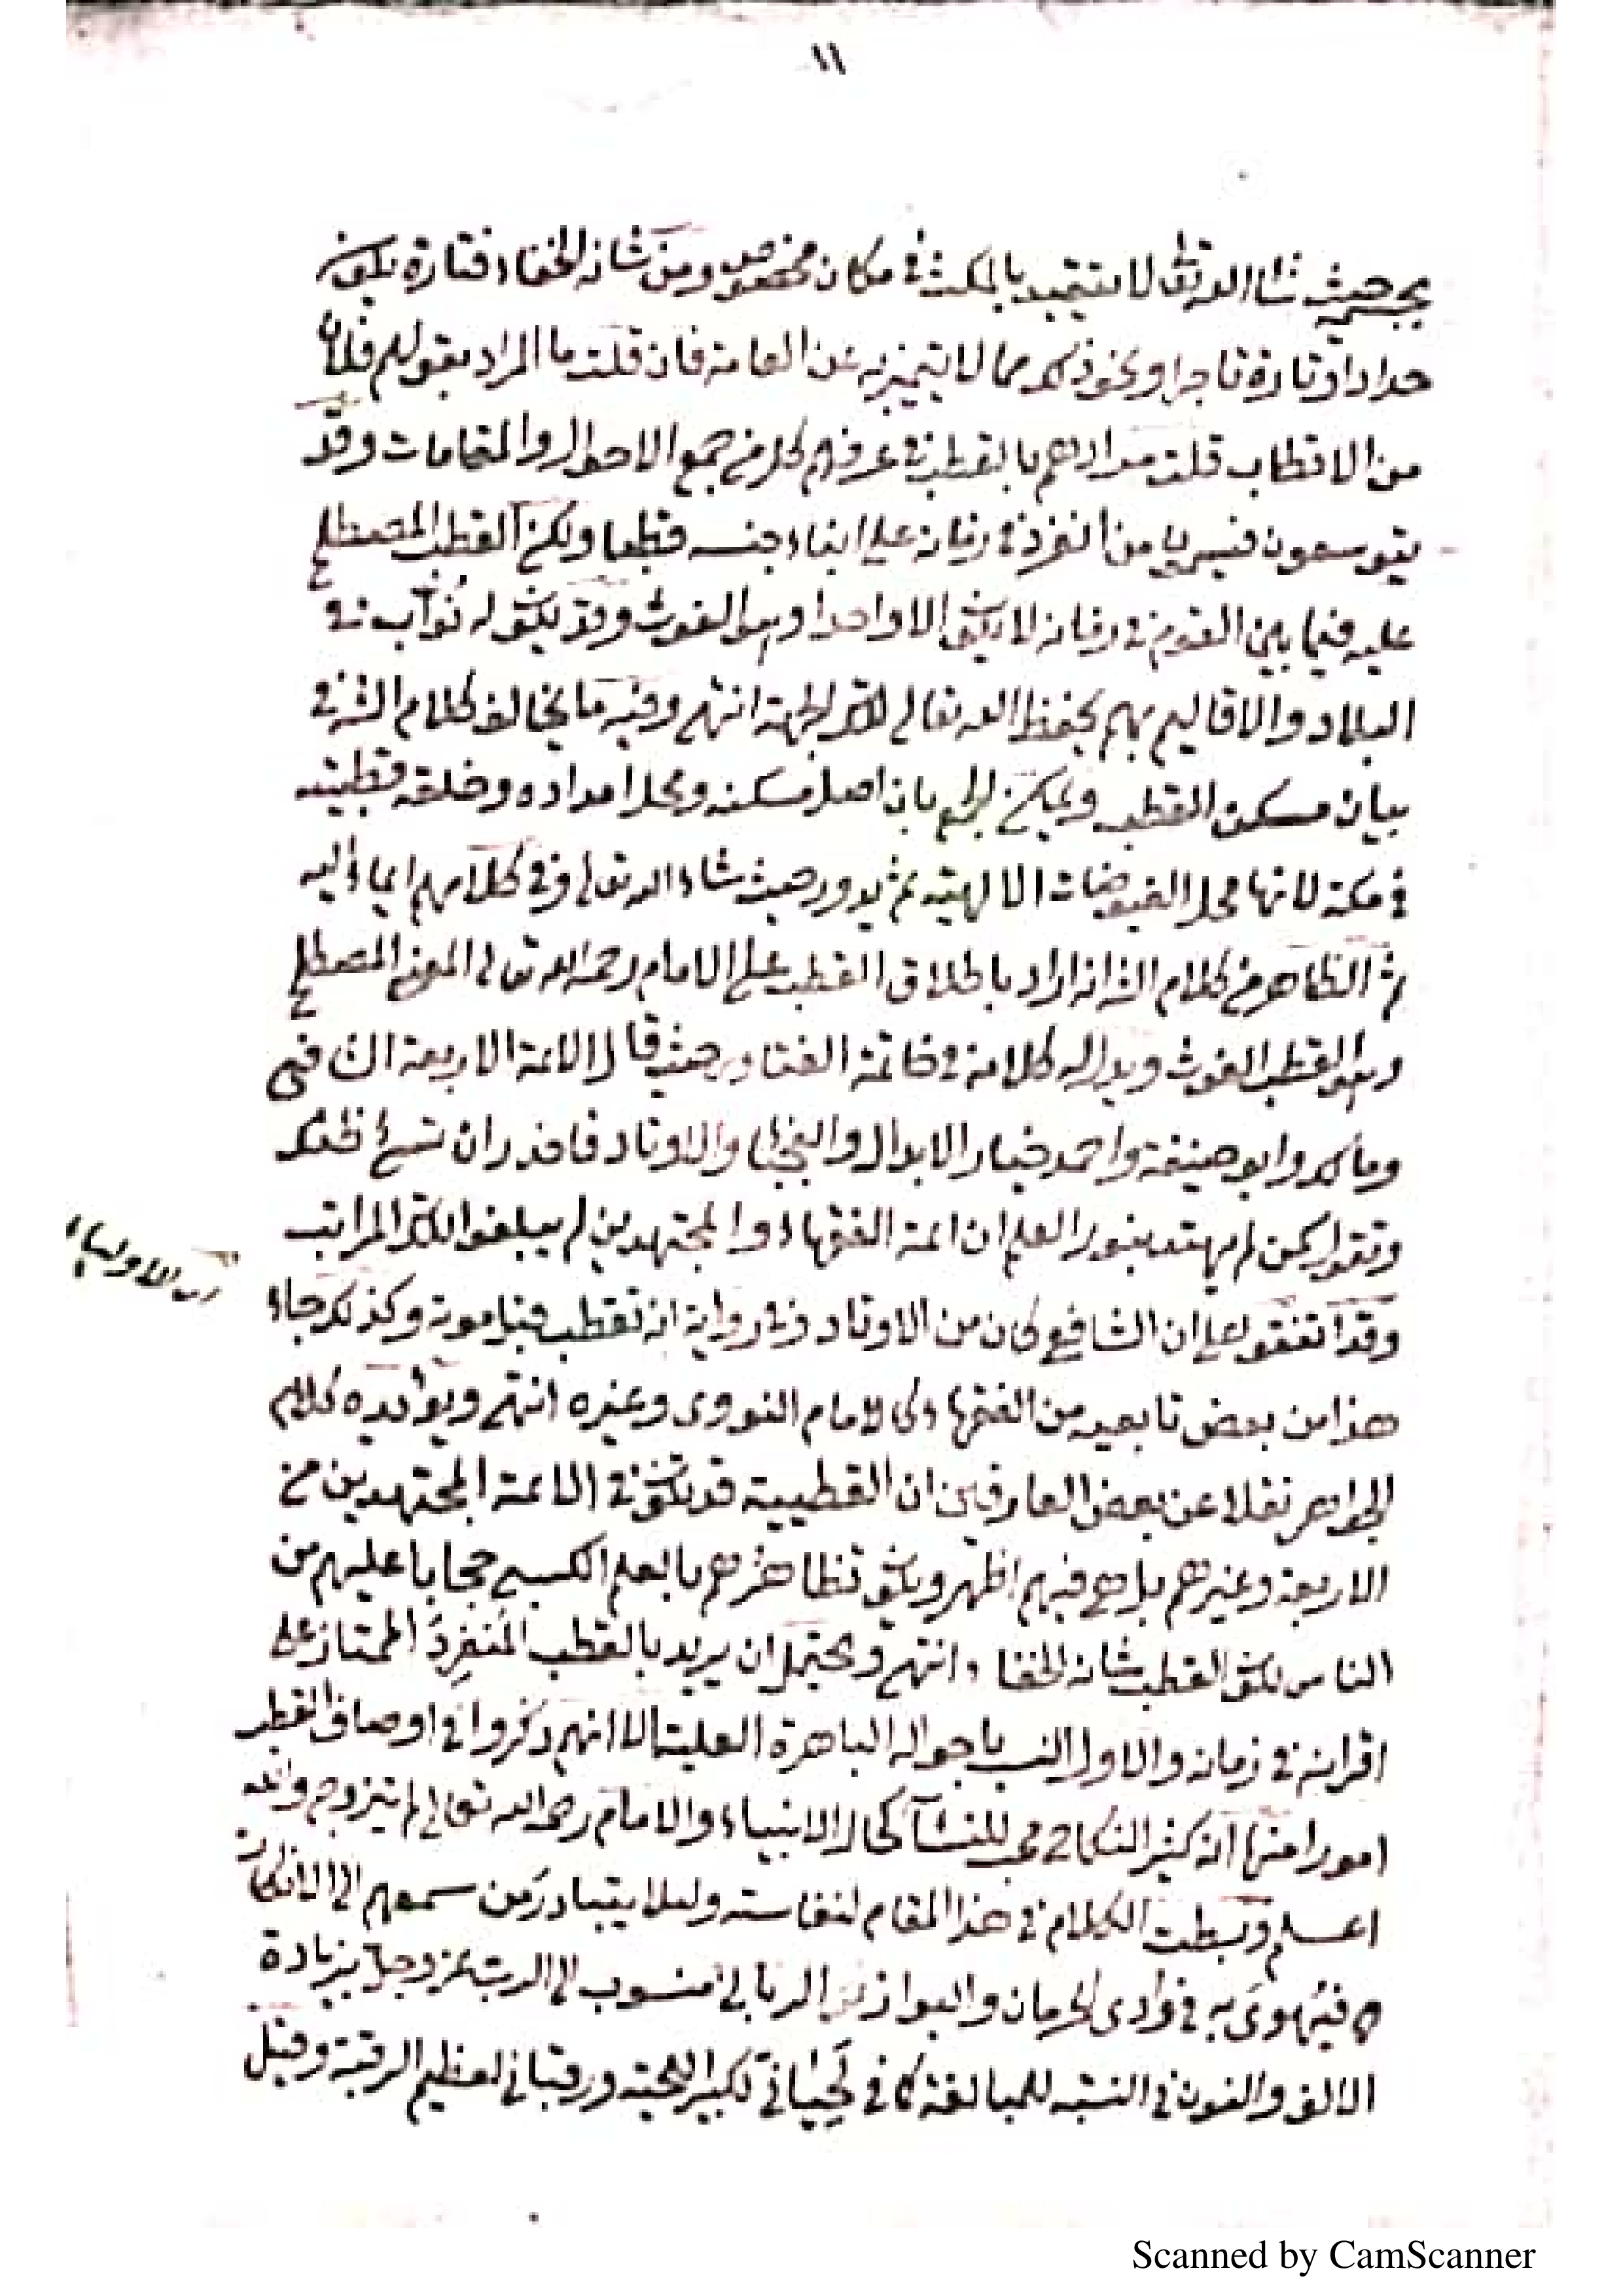 ١١
بجسمه حيث شاء الله تعالى لا يتقيد بالمكث في مكان مخصوص ومن شانه الخفاء فتارة يكون
حدادا وتارة تاجرا ونحو ذلك مما لا يتميز به عن العامة فان قلت ما المراد بقولهم فلان
من الاقطاب قلت مرادهم بالقطب في عرفهم كل من جمع الاحوال والمقامات وقد
يتوسعون فيسمون من انفرد في زمانه على ابناء جنسه قطبا ولكن القطب المصطلح
عليه فيما بين القوم في زمانه لا يكون الا واحدا وهو الغوث وقد يكون له نواب في
البلاد والاقاليم بهم يحفظ الله تعالى تلك الجهة انتهى وفيه ما يخالف كلام الش في
بيان مسكن القطب ويمكن الجمع بان اصل مسكنه ومحل امداده وخلعة قطبيته
في مكة لانها محل الفيوضات الالهية ثم يدور حيث شاء الله تعالى وفي كلامهم ايماء اليه
ثم الظاهر من كلام الش انه اراد باطلاق القطب على الامام رحمه الله تعالى المعنى المصطلح
وهو القطب الغوث ويدل له كلامه في خاتمة الفتاوى حيث قال الائمة الاربعة الشافعي
ومالك وابو حنيفة واحمد خيار الابدال والنجباء والاوتاد فاحذر ان تسيء ظنك
وتقول كمن لم يهتد بنور العلم ان ائمة الفقهاء والمجتهدين لم يبلغوا تلك المراتب
الاولياء
وقد اتفقوا على ان الشافعي كان من الاوتاد وفي رواية انه تقطب قبل موته وكذلك جاء
هذا من بعض تابعيه من الفقهاء كالامام النووي وغيره انتهى ويؤيده كلام
الجواهر نقلا عن بعض العارفين ان القطبية قد تكون في الائمة المجتهدين من
الاربعة وغيرهم بل هي فيهم اظهر ويكون تظاهرهم بالعلم الكسبي حجابا عليهم من
الناس لكون القطب شانه الخفاء انتهى ويحتمل ان يريد بالقطب المنفرد الممتاز على
اقرانه في زمانه والاول انسب باحواله الباهرة العلية الا انهم ذكروا في اوصاف القطب
امورا منها انه كثير النكاح محب للنساء كحال الانبياء والامام رحمه الله تعالى لم يتزوج والله
اعلم وبسطت الكلام في هذا المقام لنفاسته ولئلا يتبادر من سمعهم الى الانكار
فيهوى به في وادي الحرمان والبوار الرباني منسوب الى الرب عز وجل بزيادة
الالف والنون في النسبة للمبالغة كما في لحياني لكبير اللحية ورقباني لعظيم الرقبة وقيل
Scanned by CamScanner